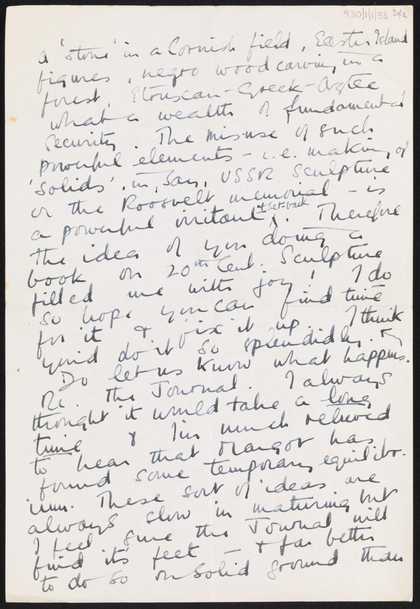 a 'stone' in a Cornish field, Easter Island
figures, negro wood carving in a
forest, Etruscan-Greek-Aztec
what a wealth of fundamental
security. The misuse of such
powerful elements - i.e. making of
'solids', in, say, USSR sculpture
or the Roosvelt memorial - is
a powerful irritant & set-back. Therefore
the idea of you doing a
book on 20th Cent. Sculpture
filled me with joy! I do
so hope you can find time
for it & fix it up. I think
you'd do it so splendidly.
Do let us know what happens.
Re. the Journal. I always
thought it would take a long
time & I'm much relieved
to hear that Margot has
found some temporary equilibr-
ium. These sort of ideas are
always slow in maturing but
I feel sure the Journal will
find its feet - & far better
to do so on solid ground than